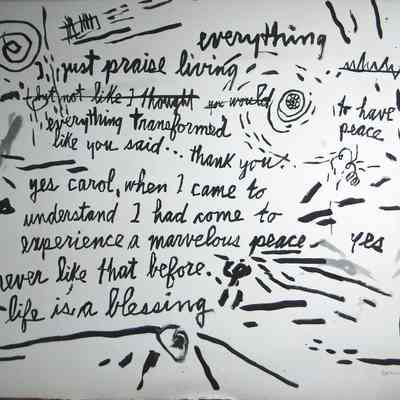 everything
I just praise living
but not like I thought you would
to have
everything transformed
peace
like you said... thank you.
yes carol, when I came to
understand I had come to
experience a marvelous peace
yes
never like that before.
life is a blessing